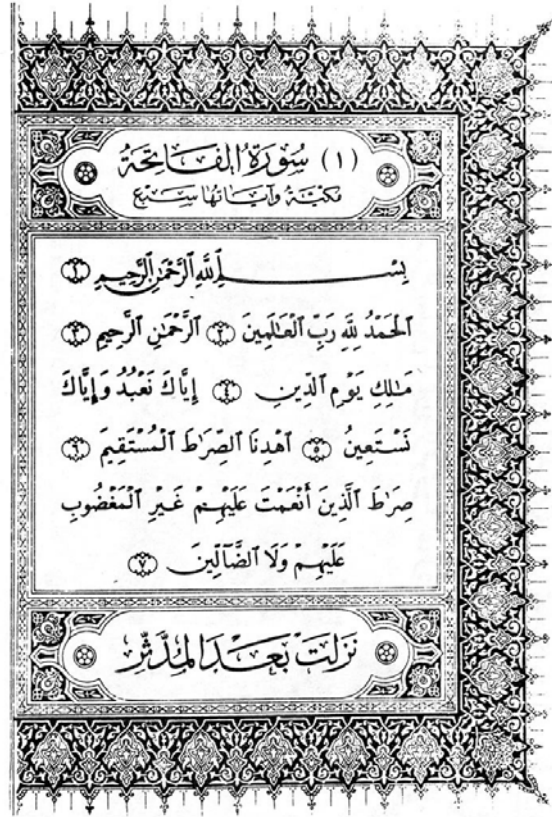 (١) سُورَةُ الفَاتِحَةُ
مَكيّة وَآيَاتُهَا سَبْع
بِسْمِ ٱللَّهِ ٱلرَّحْمَٰنِ ٱلرَّحِيمِ ١
ٱلْحَمْدُ لِلَّهِ رَبِّ ٱلْعَٰلَمِينَ ٢ ٱلرَّحْمَٰنِ ٱلرَّحِيمِ ٣
مَٰلِكِ يَوْمِ ٱلدِّينِ ٤ إِيَّاكَ نَعْبُدُ وَإِيَّاكَ
نَسْتَعِينُ ٥ ٱهْدِنَا ٱلصِّرَٰطَ ٱلْمُسْتَقِيمَ ٦
صِرَٰطَ ٱلَّذِينَ أَنْعَمْتَ عَلَيْهِمْ غَيْرِ ٱلْمَغْضُوبِ
عَلَيْهِمْ وَلَا ٱلضَّآلِّينَ ٧
نَزَلَتْ بَعْدَ المدَّثِّرْ